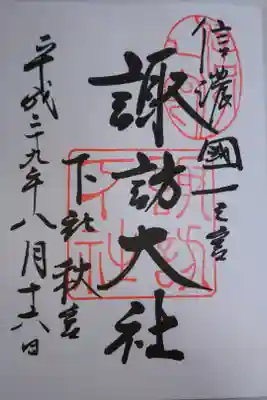 信濃國一之宮
諏訪大社
下社秋宮
平成二九年八月十六日